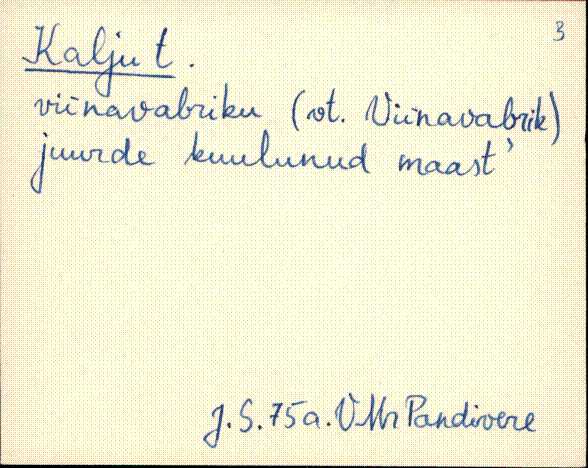 3
Kalju t.
viinavabriku (vt. Viinavabrik)
juurde kuulunud maast'
J. S. 75a. VMr Pandivere